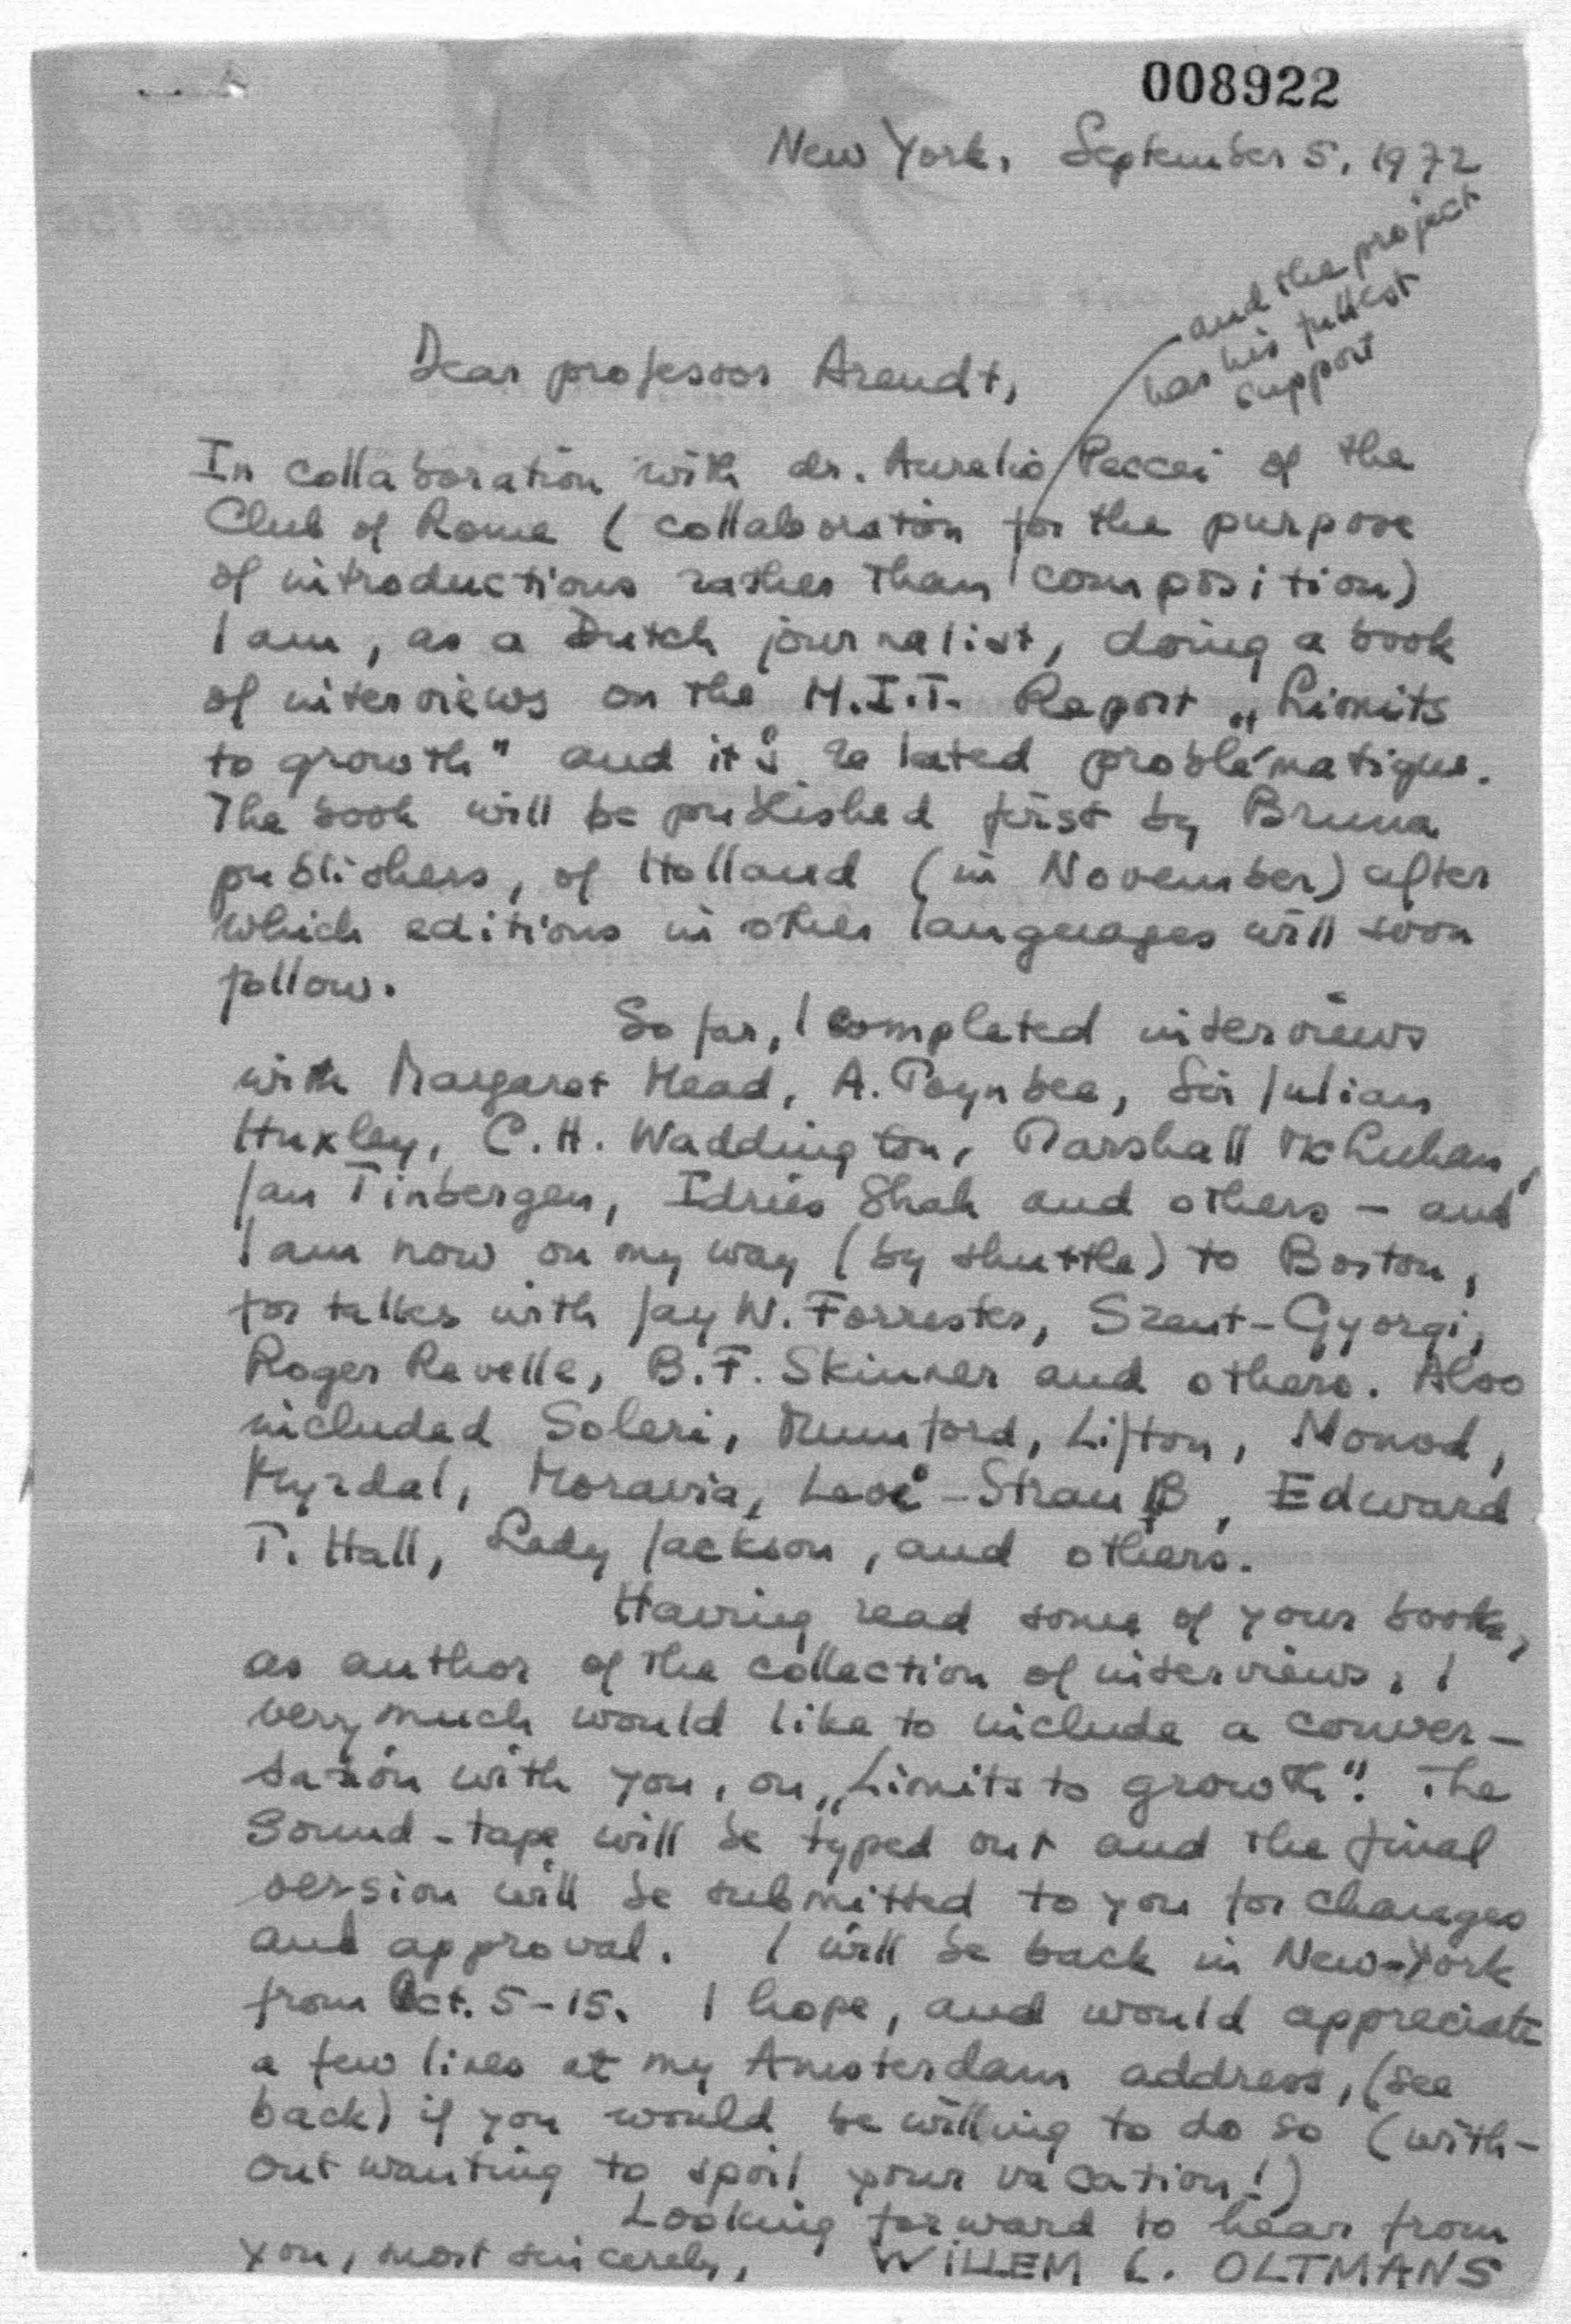 008922
New York, September 5, 1972
and the project
has his fullest
support
Dear professor Arendt,
In collaboration with dr. Aurelio Peccei of the
Club of Rome ( collaboration for the purpose
of introductions rather than composition)
I am, as a Dutch journalist, doing a book
of interviews on the M.I.T. Report „Limits
to growth" and it's related problématique.
The book will be published first by Bruna
publishers, of Holland (in November) after
which editions in other languages will soon
follow.
So far, I completed interviews
with Margaret Mead, A. Toynbee, Sir Julian
Huxley, C.H. Waddington, Marshall McLuhan,
Jan Tinbergen, Idries Shah and others – and
I am now on my way (by shuttle) to Boston,
for talks with Jay W. Forrester, Szent-Gyorgi,
Roger Revelle, B.F. Skinner and others. Also
included Soleri, Mumford, Lifton, Monod,
Myrdal, Moravia, Levi-Strauß, Edward
T. Hall, Lady Jackson, and others.
Having read some of your books,
as author of the collection of interviews, I
very much would like to include a conver-
sation with you, on „Limits to growth". The
sound-tape will be typed out and the final
version will be submitted to you for changes
and approval. I will be back in New-York
from Oct. 5-15. I hope, and would appreciate
a few lines at my Amsterdam address, (see
back) if you would be willing to do so (with-
out wanting to spoil your vacation!)
Looking forward to hear from
you, most sincerely, WILLEM L. OLTMANS